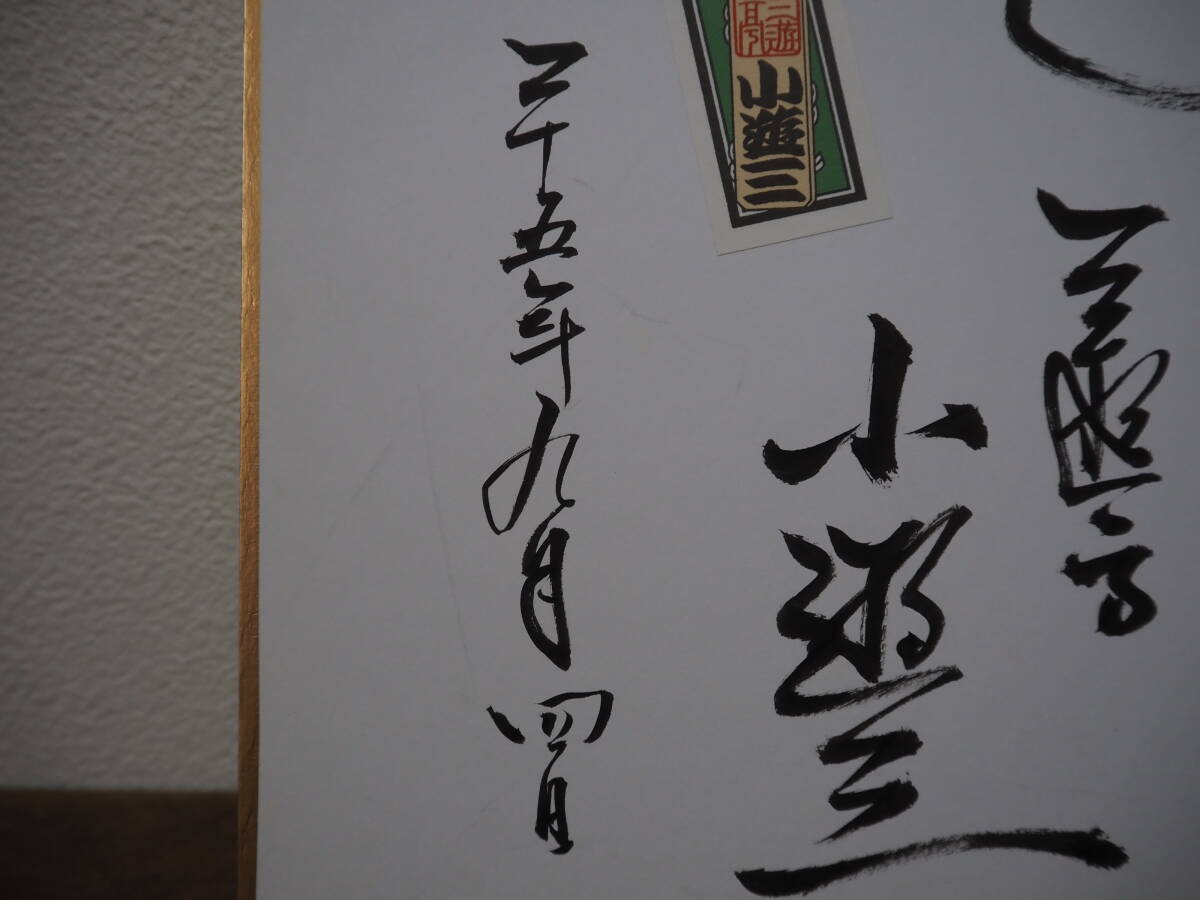 三遊亭
小遊三
三遊亭
小遊三
二十五年九月四日